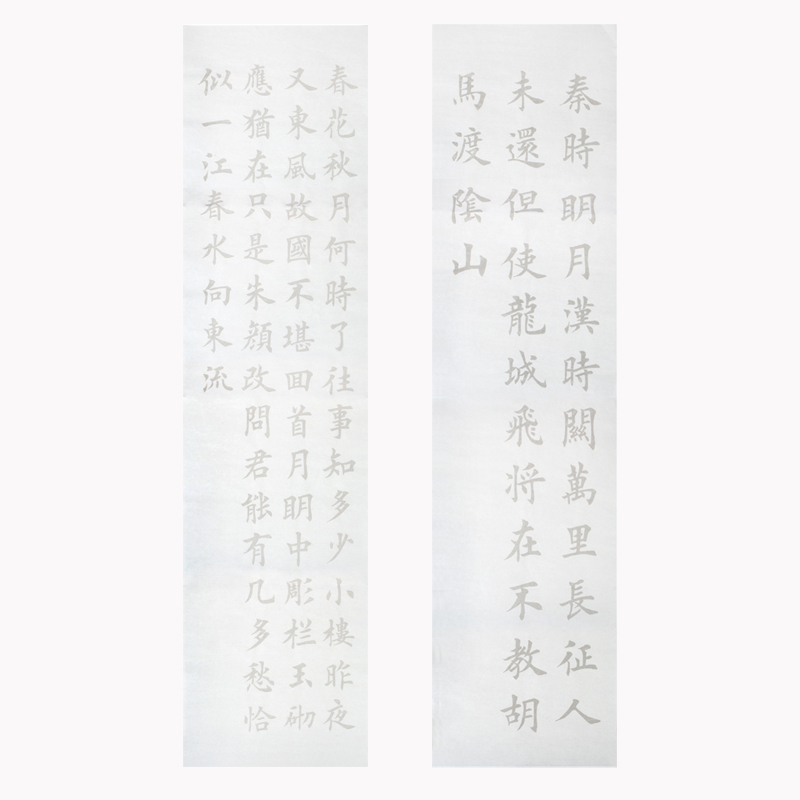 秦時眀月漢時關萬里長征人
未還但使龍城飛将在不教胡
馬渡陰山
春花秋月何時了往事知多少小樓昨夜
又東風故國不堪囬首月眀中彫栏玉砌
應猶在只是朱顔改問君能有几多愁恰
似一江春水向東流